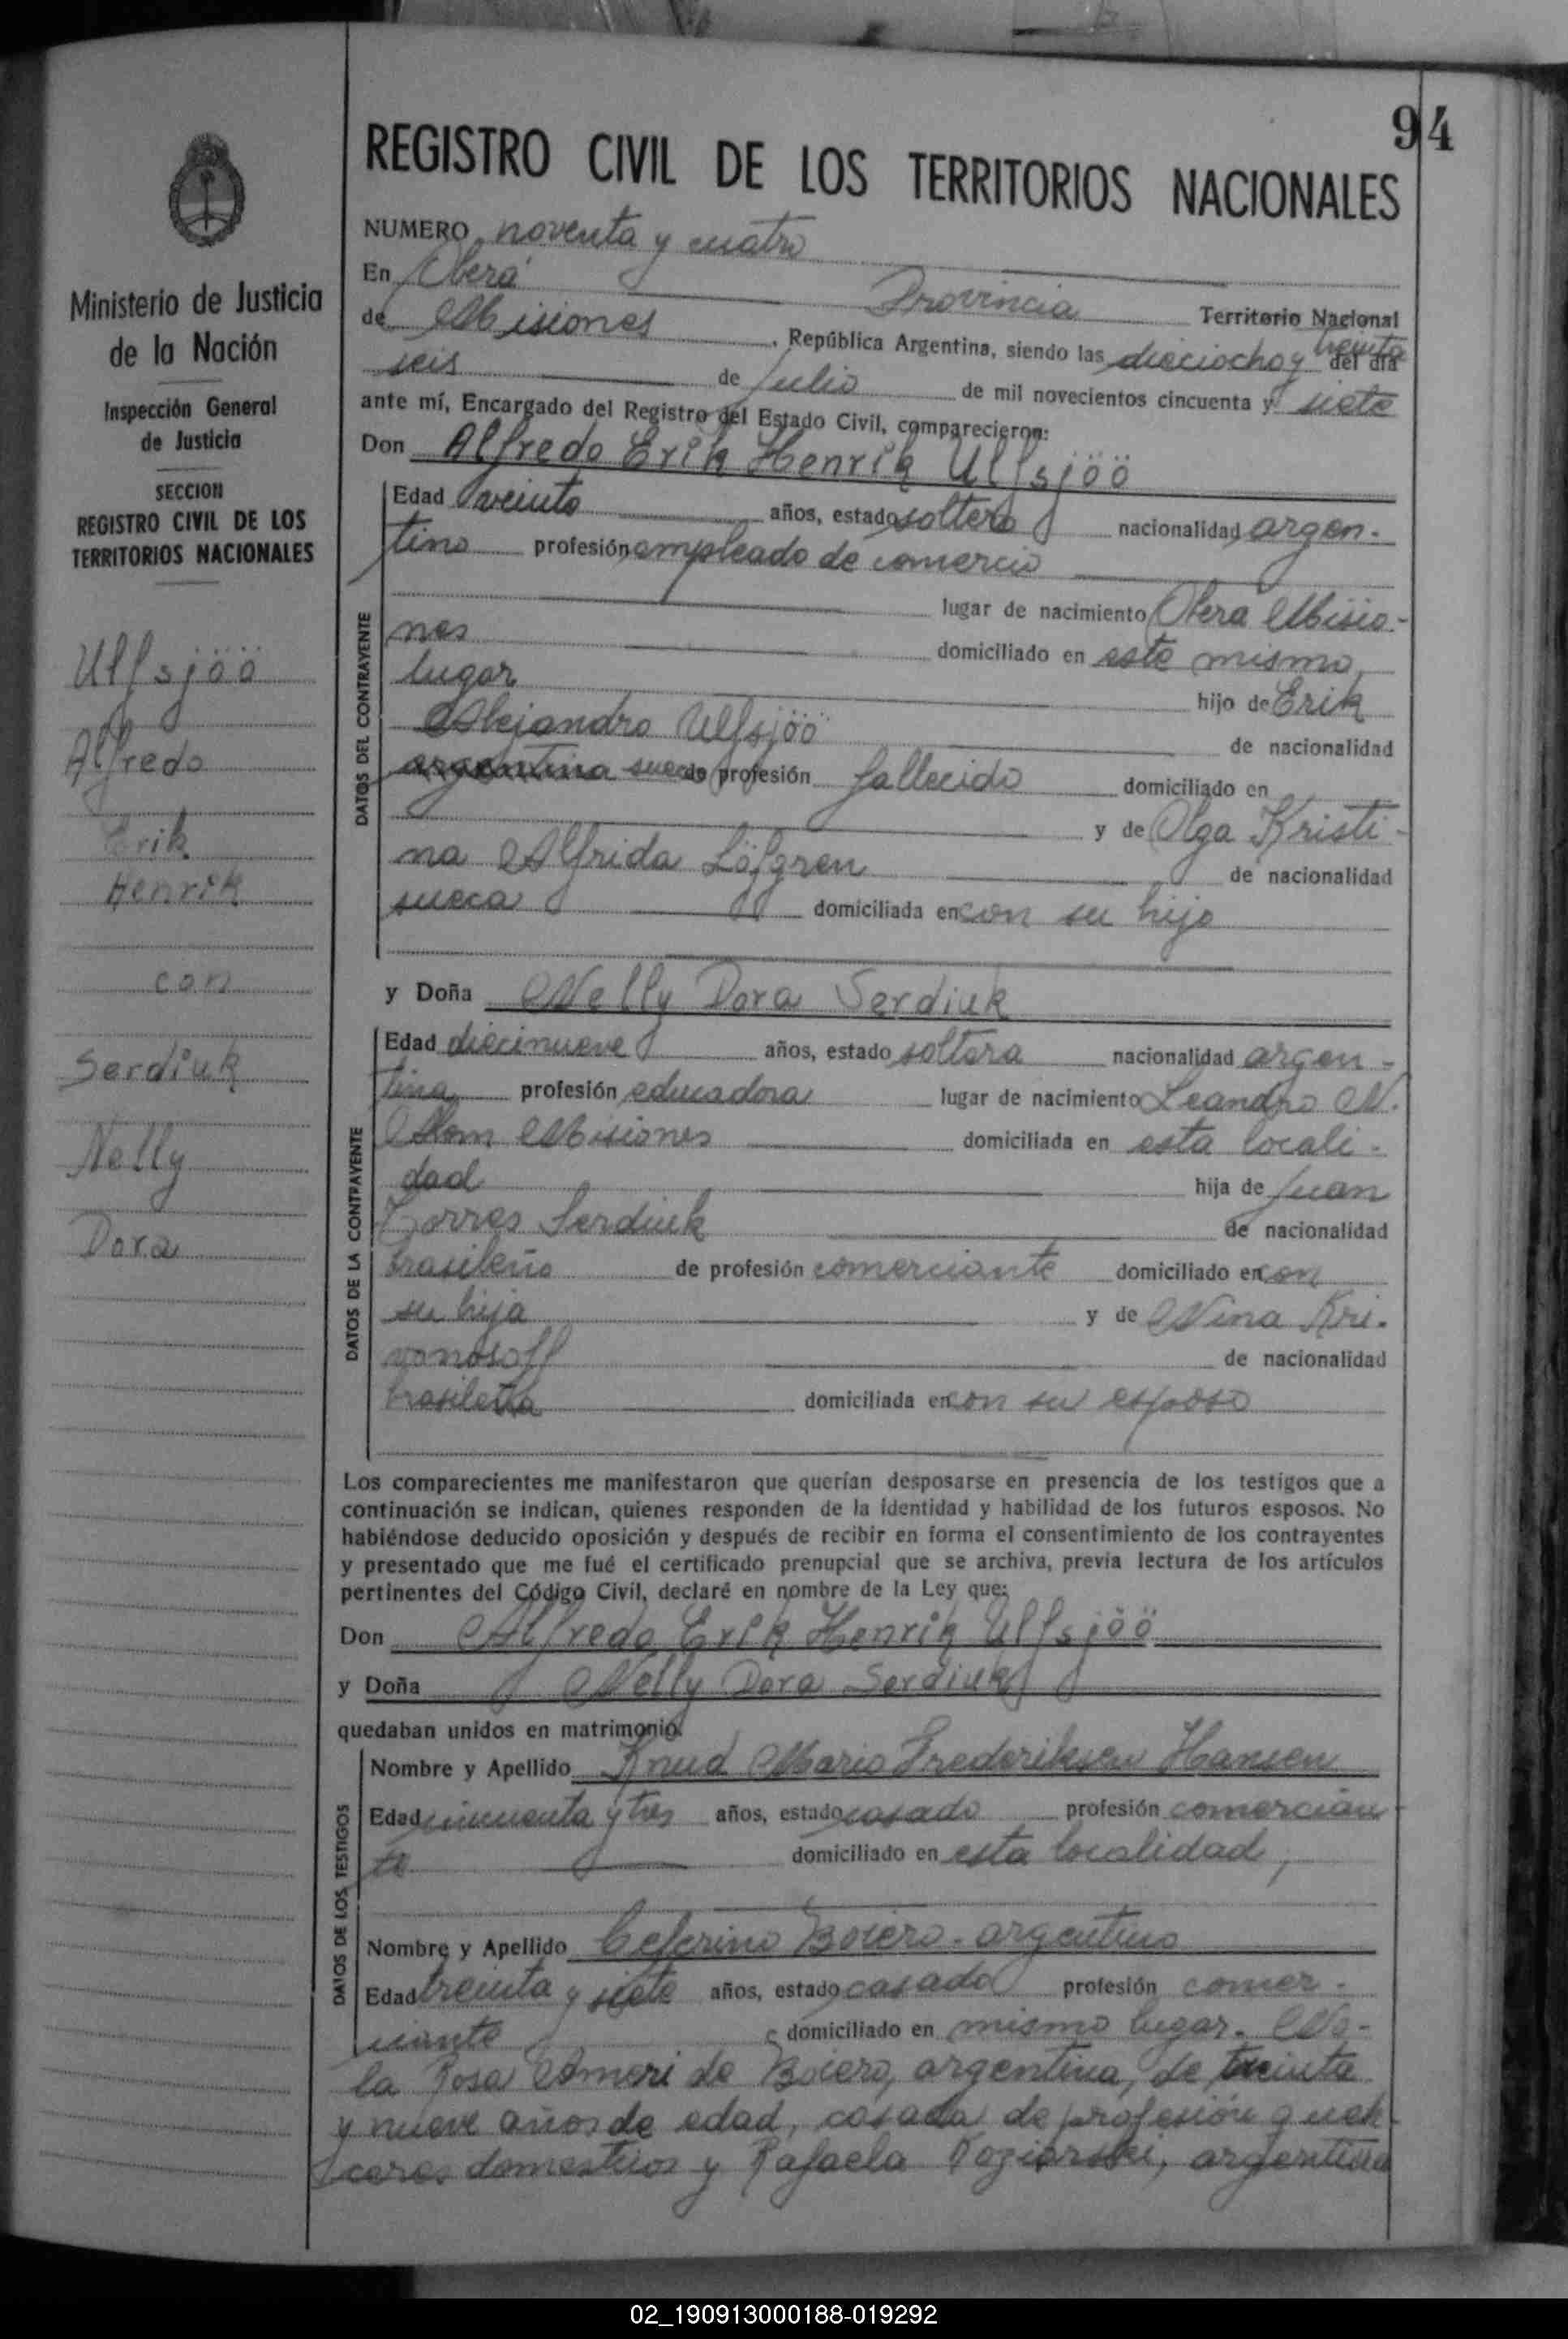 94
REGISTRO CIVIL DE LOS TERRITORIOS NACIONALES
Ministerio de Justicia
de la Nación
Inspección General
de Justicia
SECCION
REGISTRO CIVIL DE LOS
TERRITORIOS NACIONALES
Ulfsjöö
Alfredo
Erik
Henrik
con
Serdiuk
Nelly
Dora
NUMERO noventa y cuatro
En Oberá Provincia Territorio Nacional
de Misiones, República Argentina, siendo las dieciocho y treinta del día
seis de Julio de mil novecientos cincuenta y siete
ante mí, Encargado del Registro del Estado Civil, comparecieron:
Don Alfredo Erik Henrik Ulfsjöö
DATOS DEL CONTRAYENTE
Edad veinte años, estado soltero nacionalidad argen-
tino profesión empleado de comercio
lugar de nacimiento Oberá Misio-
nes domiciliado en este mismo
lugar hijo de Erik
Alejandro Ulfsjöö de nacionalidad
argentina sueco profesión fallecido domiciliado en
y de Olga Kristi-
na Alfrida Löfgren de nacionalidad
sueca domiciliada en con su hijo
y Doña Nelly Dora Serdiuk
DATOS DE LA CONTRAYENTE
Edad diecinueve años, estado soltera nacionalidad argen-
tina profesión educadora lugar de nacimiento Leandro N.
Alem Misiones domiciliada en esta locali-
dad hija de Juan
Torres Serdiuk de nacionalidad
brasileño de profesión comerciante domiciliado en con
su hija y de Nina Kri-
vonosoff de nacionalidad
brasileña domiciliada en con su esposo
Los comparecientes me manifestaron que querían desposarse en presencia de los testigos que a
continuación se indican, quienes responden de la identidad y habilidad de los futuros esposos. No
habiéndose deducido oposición y después de recibir en forma el consentimiento de los contrayentes
y presentado que me fué el certificado prenupcial que se archiva, previa lectura de los artículos
pertinentes del Código Civil, declaré en nombre de la Ley que:
Don Alfredo Erik Henrik Ulfsjöö
y Doña Nelly Dora Serdiuk
quedaban unidos en matrimonio.
DATOS DE LOS TESTIGOS
Nombre y Apellido Knud Mario Frederiksen Hansen
Edad cincuenta y tres años, estado casado profesión comercian-
te domiciliado en esta localidad,
Nombre y Apellido Ceferino Boiero - argentino
Edad treinta y siete años, estado casado profesión comer-
ciante domiciliado en mismo lugar. Ne-
la Rosa de Boiero, argentina, de treinta
y nueve años de edad, casada de profesión queha-
ceres domesticos y Rafaela Koziarski, argentina
02_190913000188-019292